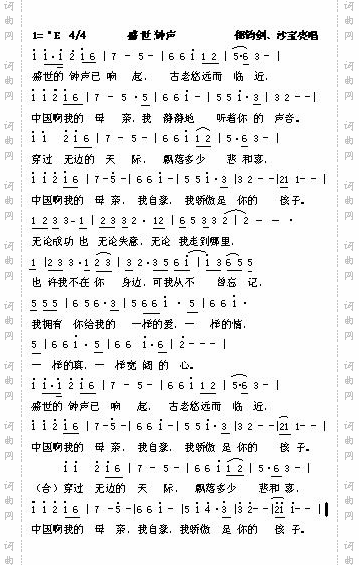 1=♭E 4/4 盛世钟声 郁钧剑、沙宝亮唱
i i·i 2 i 6 | 7 - 5 - | 6 6 i 1 2 | 5·6 3 - |
盛世的 钟声已 响 起, 古老悠远而 临 近,
i i 2 i 6 | 7 - 5 · 5 | 6 6 i - | 5 5 i · 3 | 3 2 - - |
中国啊我的 母 亲, 我 静静地 听着你 的 声音。
i i 2 i 6 | 7 - 5 - | 6 6 i 1 2 | 5·6 3 - |
穿过 无边的 天 际, 飘落多少 悲 和喜,
i i 2 i 6 | 7 - 5 - | 6 6 i - | 5 5 i · 3 | 3 2 - - | 2 1 - - |
中国啊我的 母 亲, 我自豪, 我骄傲是 你的 孩子。
1 2 3 3 - 1 | 2 3 3 2 · 1 2 | 6 5 3 3 2 | 2 - - ·
无论成功 也 无论失意, 无论 我走到哪里,
1 | 2 3 3 · 1 2 3 | 3 2 · 3 5 6 1 | 1 3 6 5 5
也 许我不在 你 身边, 可我从不 曾忘 记,
5 5 5 | 6 5 6 · 3 | 5 6 6 i · 5 | 6 6 i ·
我拥有 你给我的 一样的爱, 一 样的情,
5 | 6 6 i · 5 | 6 6 i · 6 | 2 - - - |
一 样的真, 一 样宽 阔 的 心。
i i·i 2 i 6 | 7 - 5 - | 6 6 i 1 2 | 5·6 3 - |
盛世的 钟声已 响 起, 古老悠远而 临 近,
i i 2 i 6 | 7 - 5 - | 6 6 i - | 5 5 i · 3 | 3 2 - - | 2 1 - - |
中国啊我的 母 亲, 我自豪, 我骄傲 是 你的 孩 子。
i i 2 i 6 | 7 - 5 - | 6 6 i 1 2 | 5·6 3 - |
(合)穿过 无边的 天 际, 飘落多少 悲和喜,
i i 2 i 6 | 7 - 5 - | 6 6 i - | 5 i 4 · 3 | 3 2 - - | 2 i i - - |
中国啊我的 母 亲, 我自豪, 我骄傲 是 你的 孩 子。
词曲网